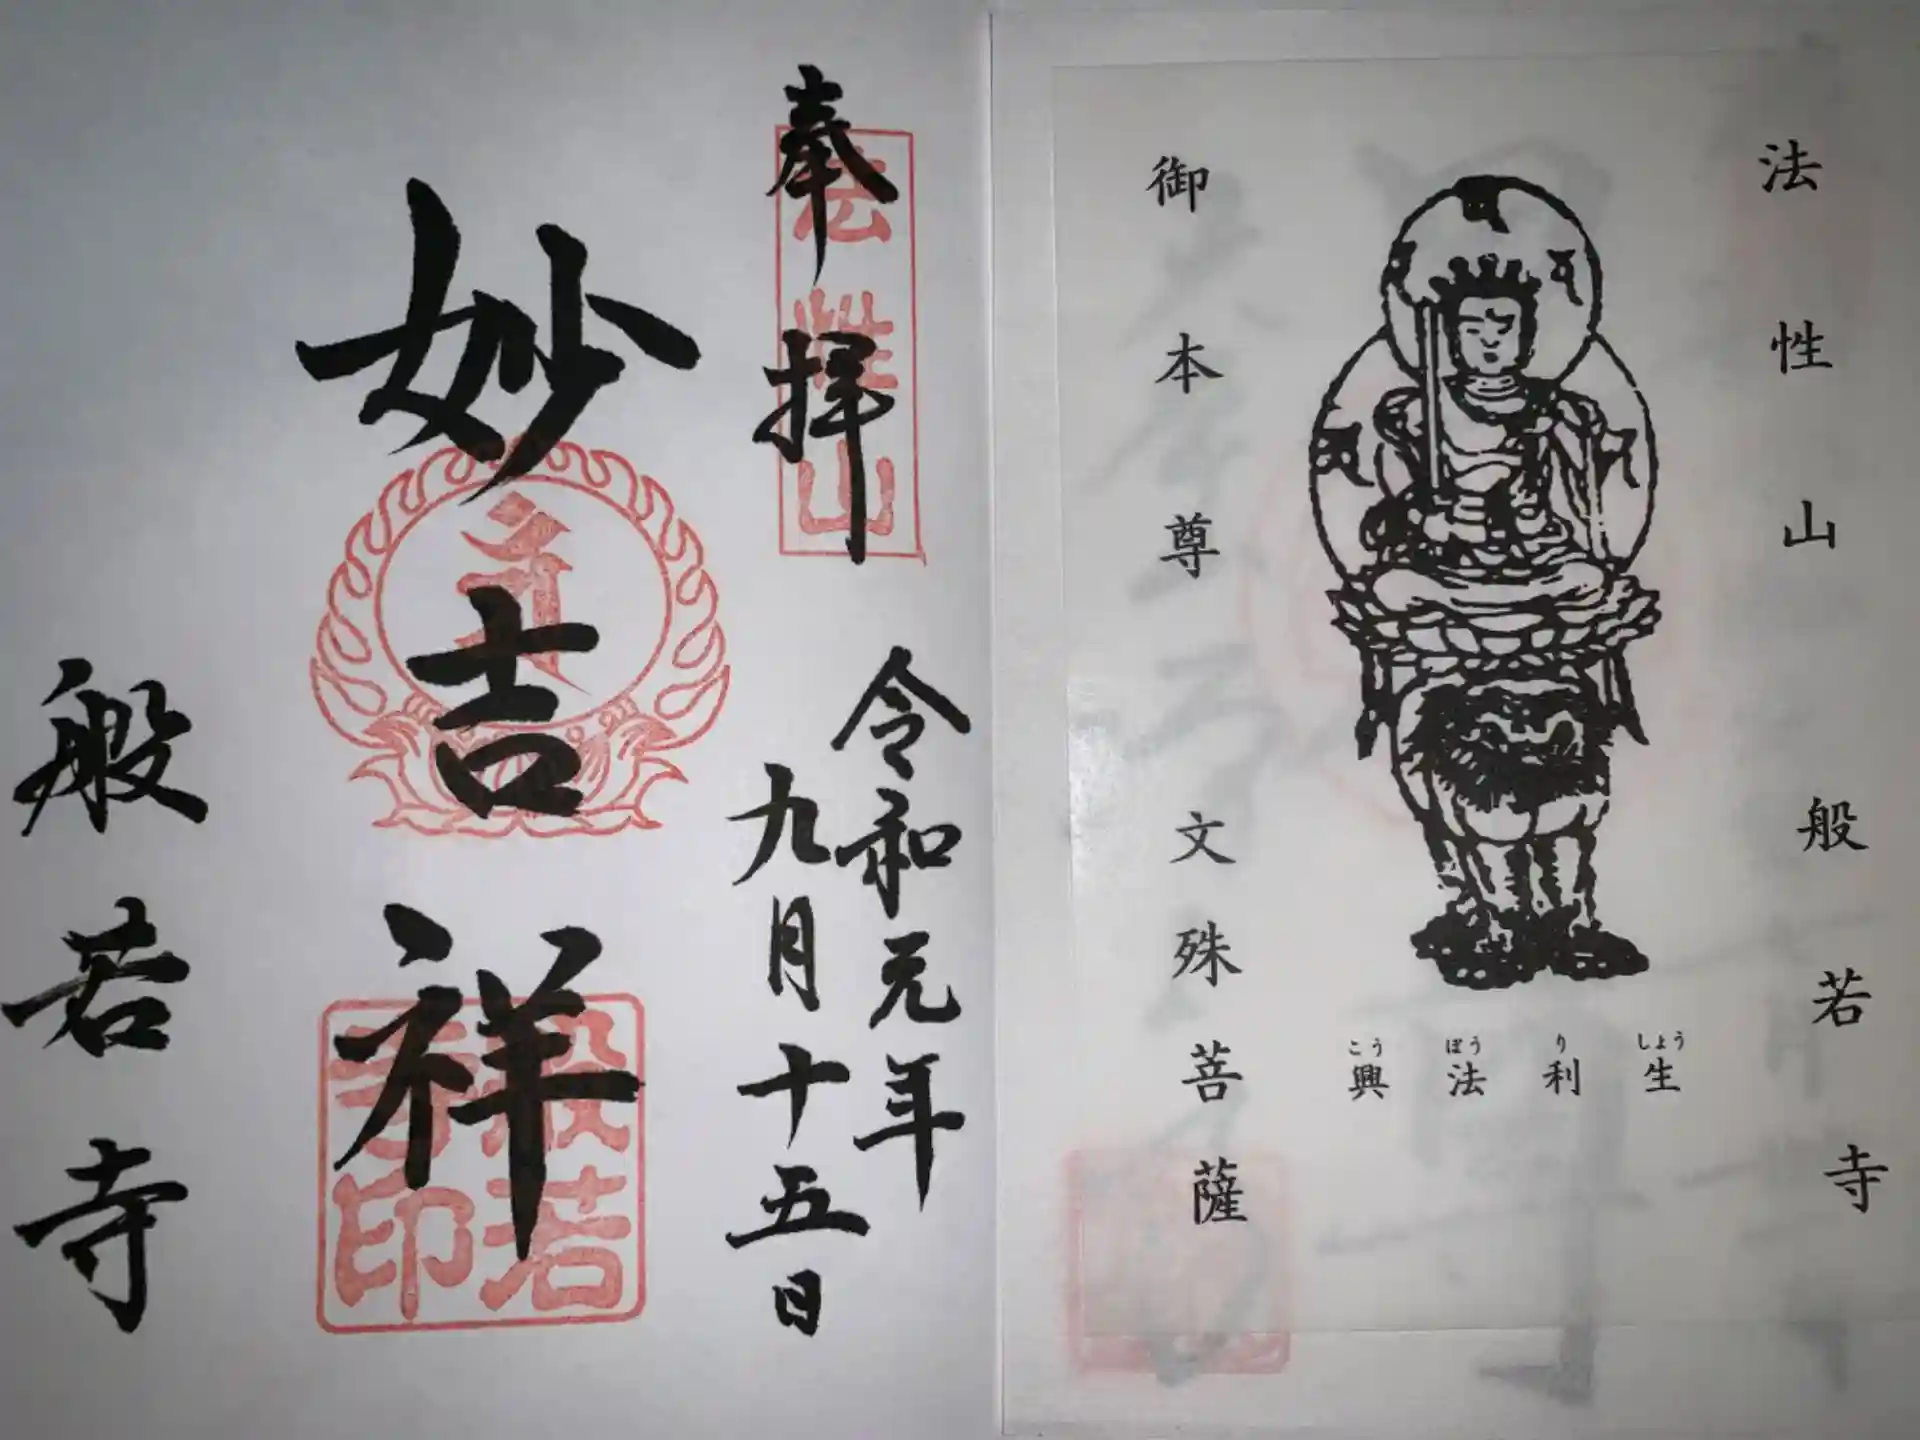 法性山 般若寺
生利法興
しょう り ぼう こう
御本尊 文殊菩薩
奉拝
法性山
令和元年
九月十五日
妙吉祥
般若寺印
般若寺